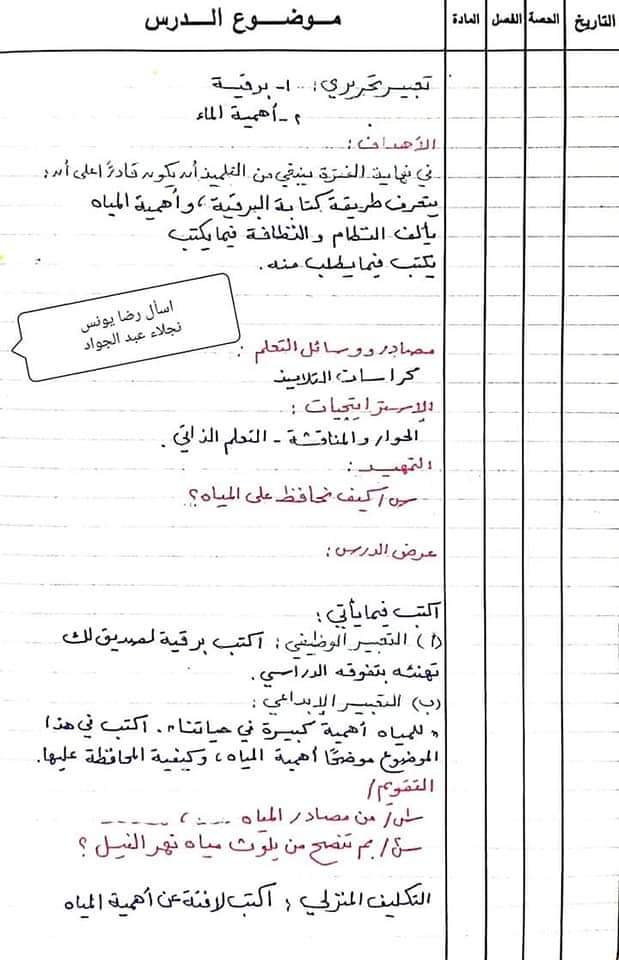 التاريخ الحصة الفصل المادة موضوع الدرس
تعبير تحريري: ١- برقية
٢- أهمية الماء
الأهداف:
في نهاية الفترة ينبغي من التلميذ أن يكون قادرًا على أن:
يتعرف طريقة كتابة البرقية، وأهمية المياه
يألف النظام والنظافة فيما يكتب
يكتب فيما يطلب منه.
اسأل رضا يونس
نجلاء عبد الجواد
مصادر ووسائل التعلم:
كراسات التلاميذ
الإستراتيجيات:
الحوار والمناقشة - التعلم الذاتي.
التمهيد:
س/ كيف نحافظ على المياه؟
عرض الدرس:
اكتب فيما يأتي:
(أ) التعبير الوظيفي: اكتب برقية لصديق لك
تهنئه بتفوقه الدراسي.
(ب) التعبير الإبداعي:
"للمياه أهمية كبيرة في حياتنا". اكتب في هذا
الموضوع موضحًا أهمية المياه، وكيفية المحافظة عليها.
التقويم/
س١/ من مصادر المياه ....، ......
س٢/ بم تنصح من يلوث مياه نهر النيل؟
التكليف المنزلي: اكتب لافتة عن أهمية المياه